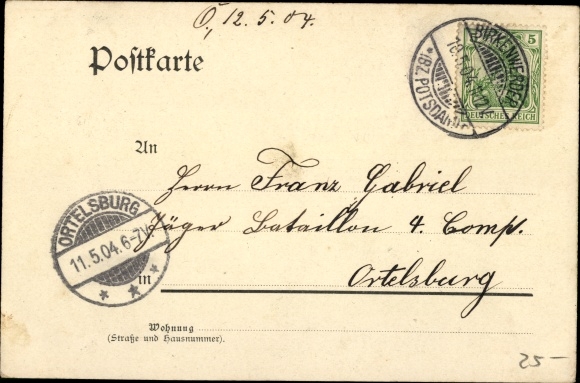 O, 12.5.04.
Postkarte
BIRKENWERDER
*(BZ. POTSDAM)
5
DEUTSCHES REICH
An
Herrn Franz Gabriel
Jäger Bataillon 4. Comp.
Ortelsburg
ORTELSBURG
11.5.04. 6-7V.
in
Wohnung
(Straße und Hausnummer).
25-